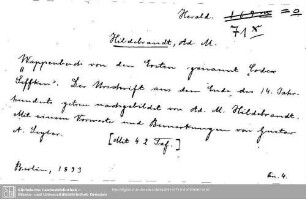 Herald.
71 x
Hildebrandt, Ad M.
Wappenbuch von den Ersten genannt "Codex
Seffken". Der Urschrift aus dem Ende des 14. Jahr-
hunderts getreu nachgebildet von Ad. M. Hildebrandt.
Mit einem Vorworte und Bemerkungen von Gustav
A. Seyler.
[Mit 42 Taf.]
Berlin, 1893
4.